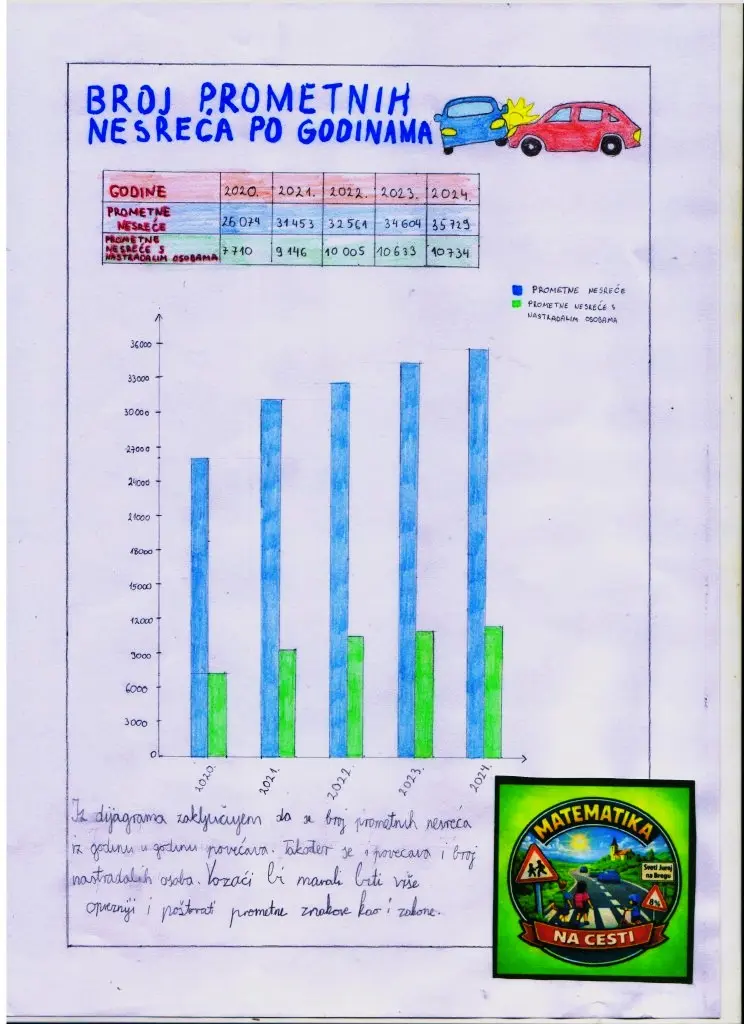 BROJ PROMETNIH
NESREĆA PO GODINAMA
GODINE 2020. 2021. 2022. 2023. 2024.
PROMETNE NESREĆE 26 074 31 453 32 561 34 604 35 729
PROMETNE NESREĆE S NASTRADALIM OSOBAMA 7 710 9 146 10 005 10 633 10 734
PROMETNE NESREĆE
PROMETNE NESREĆE S
NASTRADALIM OSOBAMA
36000
33000
30000
27000
24000
21000
18000
15000
12000
9000
6000
3000
0
2020. 2021. 2022. 2023. 2024.
Iz dijagrama zaključujem da se broj prometnih nesreća
iz godine u godinu povećava. Također se i povećava i broj
nastradalih osoba. Vozači bi morali biti više
oprezniji i poštovati prometne znakove kao i zakone.
MATEMATIKA
Sveti Juraj
na Bregu
8%
NA CESTI